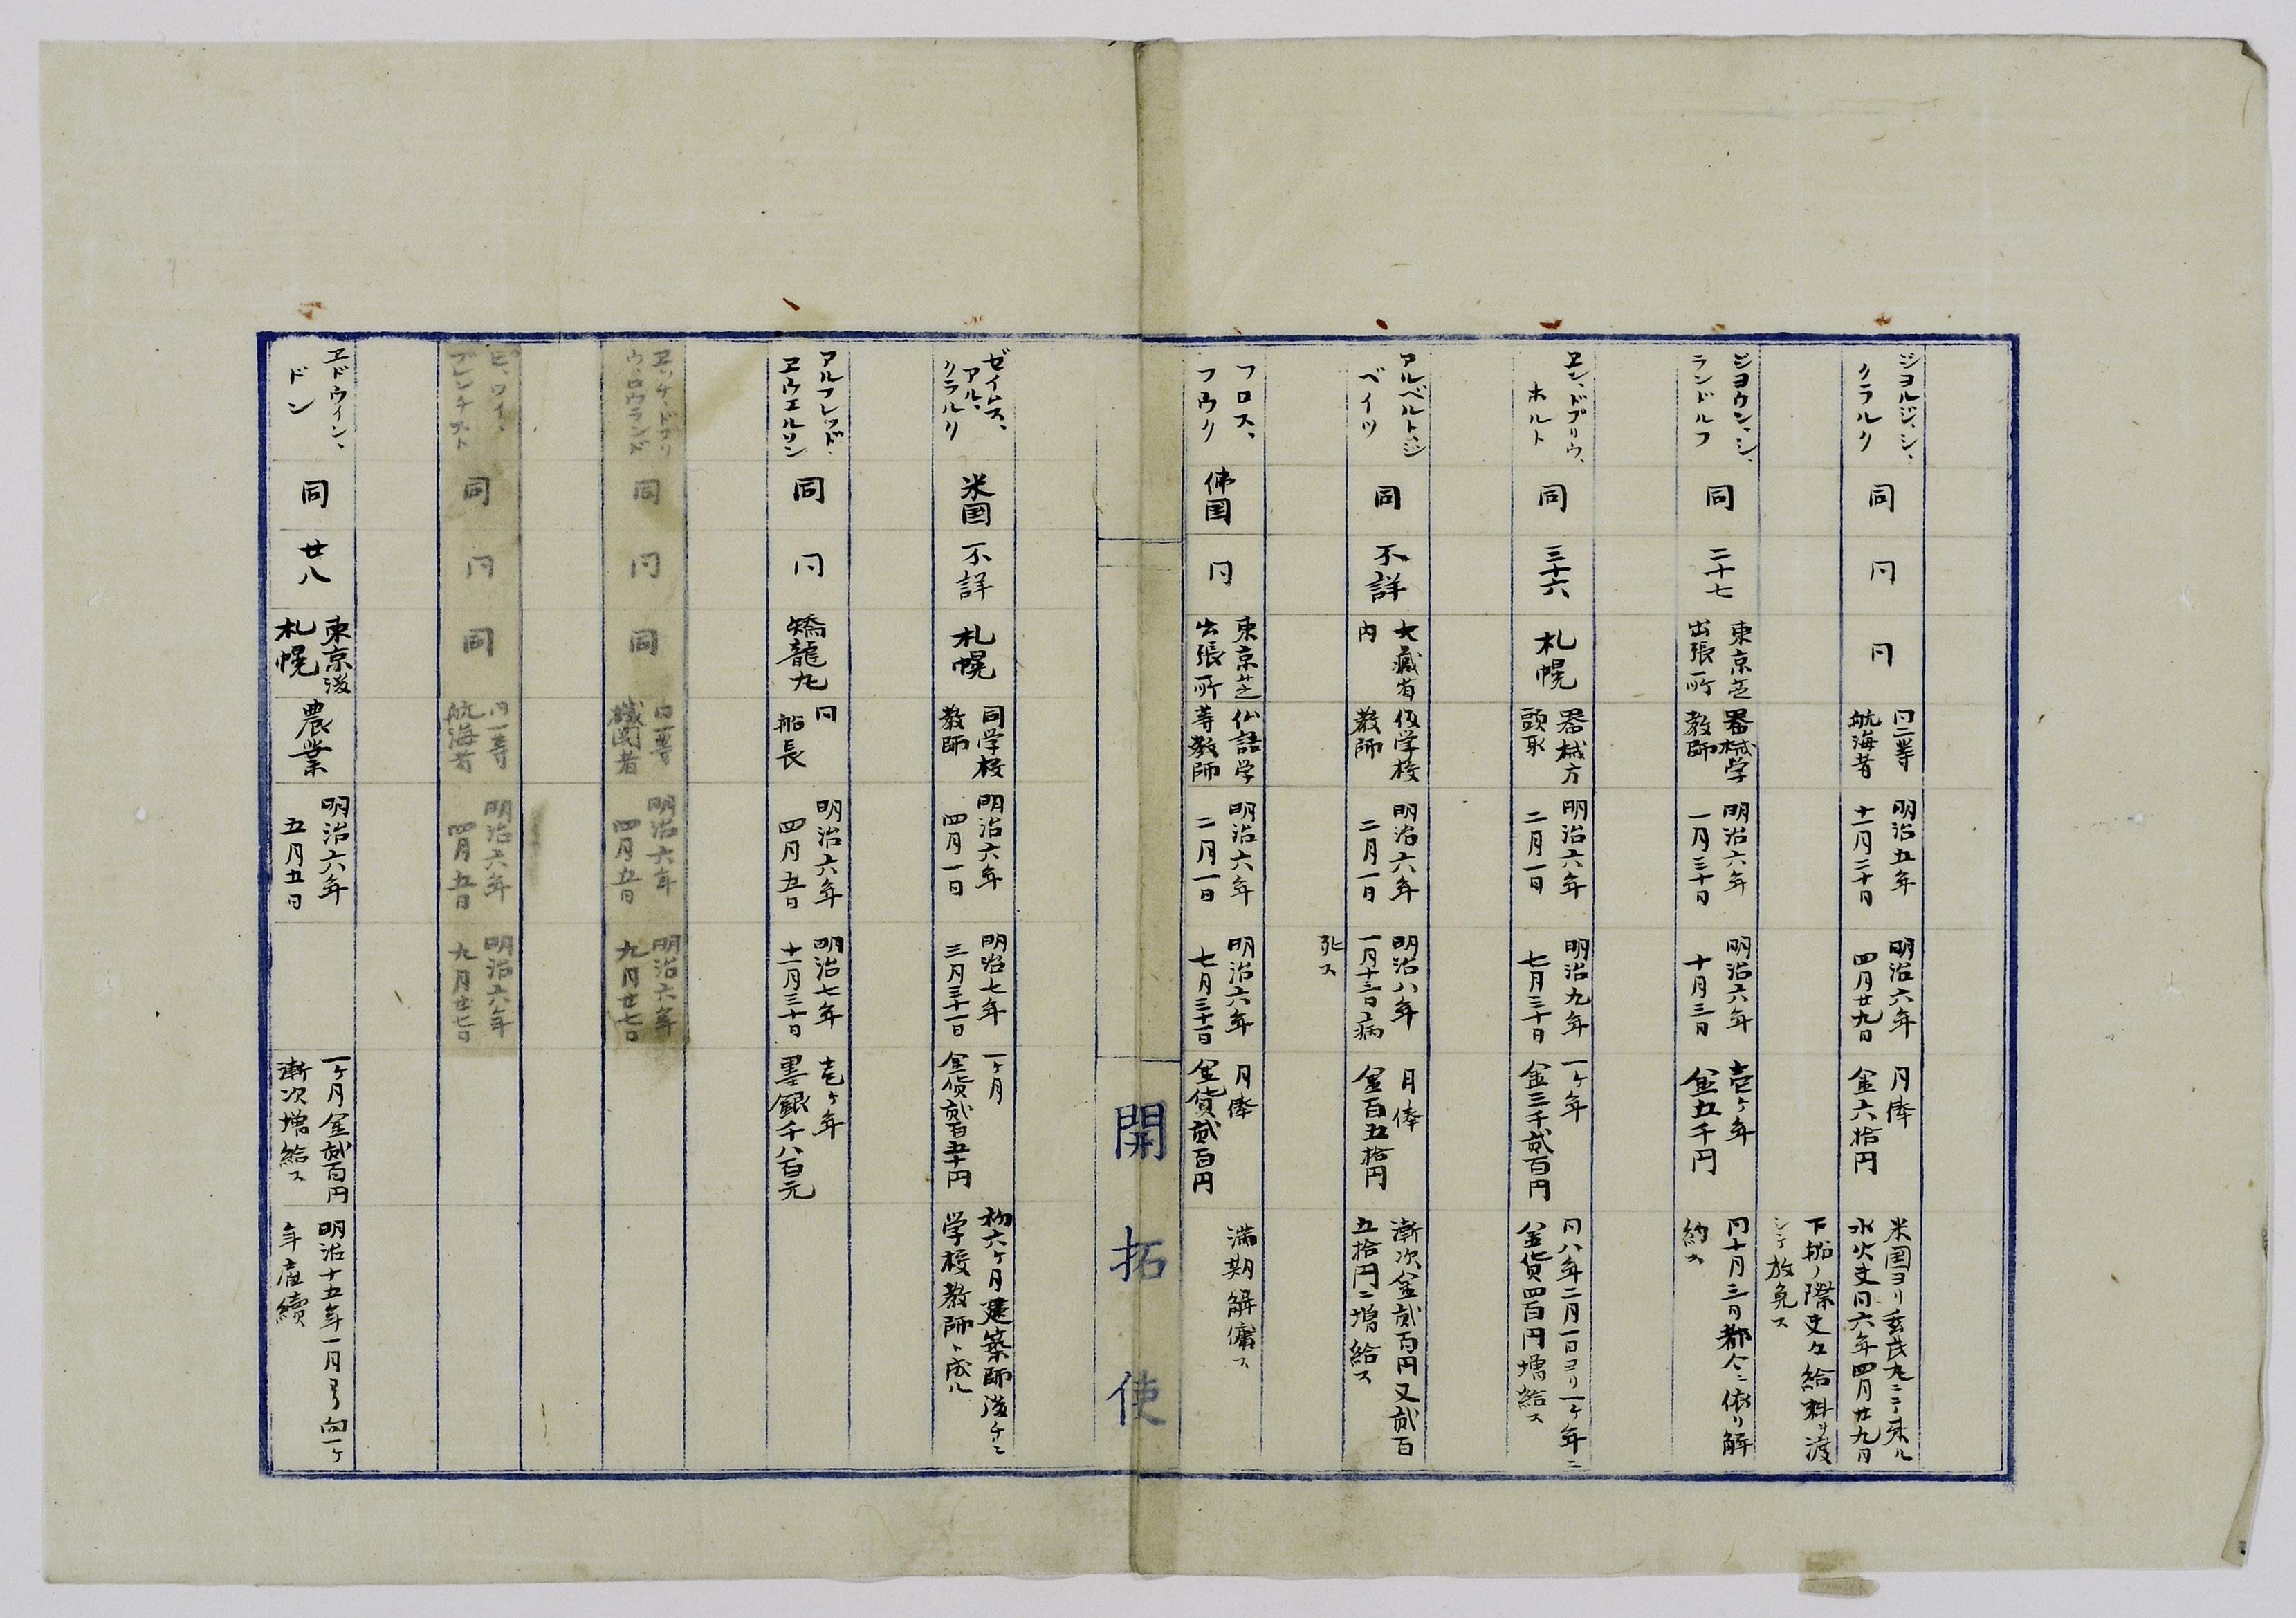 ジヨルジ、シ、
クラルク
同
同
同
同二等
航海者
明治五年
十一月二十日
明治六年
四月廿九日
月俸
金六拾円
米国ヨリ玄武丸ニテ来ル
水火夫同六年四月廿九日
下船ノ際夫々給料ヲ渡
シテ放免ス
ジヨウン、シ、
ランドルフ
同
二十七
東京芝
出張所
器械学
教師
明治六年
一月三十日
明治六年
十月三日
壱ヶ年
金五千円
同十月三日都合ニ依リ解
約ス
エン、ドブリウ、
ホルト
同
三十六
札幌
器械方
頭取
明治六年
二月一日
明治九年
七月三十日
一ヶ年
金三千貳百円
同八年二月一日ヨリ一ヶ年ニ
金貨四百円増給ス
アルベルト、ジ
ベイツ
同
不詳
大蔵省
内
仮学校
教師
明治六年
二月一日
明治八年
一月十三日病
死ス
月俸
金百五拾円
漸次金貳百円又貳百
五拾円ニ増給ス
フロス、
フウク
佛国
同
東京芝
出張所
仏語学
等教師
明治六年
二月一日
明治六年
七月三十一日
月俸
金貨貳百円
満期解傭ス
開拓使
ゼイムス、
アル、
クラルク
米国
不詳
札幌
同学校
教師
明治六年
四月一日
明治七年
三月三十一日
一ヶ月
金貨貳百五十円
初六ヶ月建築師後チニ
学校教師ト成ル
アルフレッド、
ヱウエルソン
同
同
矯龍丸
同
船長
明治六年
四月五日
明治七年
十一月三十日
壱ヶ年
墨銀千八百元
ヱッケ、ドブリ
ウ、ロウランド
同
同
同
同一等
機関者
明治六年
四月五日
明治六年
九月廿七日
ヒ、ワイ、
同
同
同
同一等
航海者
明治六年
四月五日
明治六年
九月廿七日
ヱドウイン、
ドン
同
廿八
東京後
札幌
農業
明治六年
五月五日
一ヶ月金貳百円
漸次増給ス
明治十五年一月ヨリ向一ヶ
年雇續